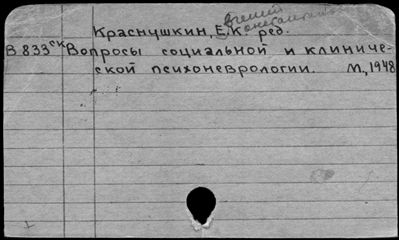 Краснушкин, Е.К. ред.
В 833 ск Вопросы социальной и клиниче-
ской психоневрологии. М., 1948